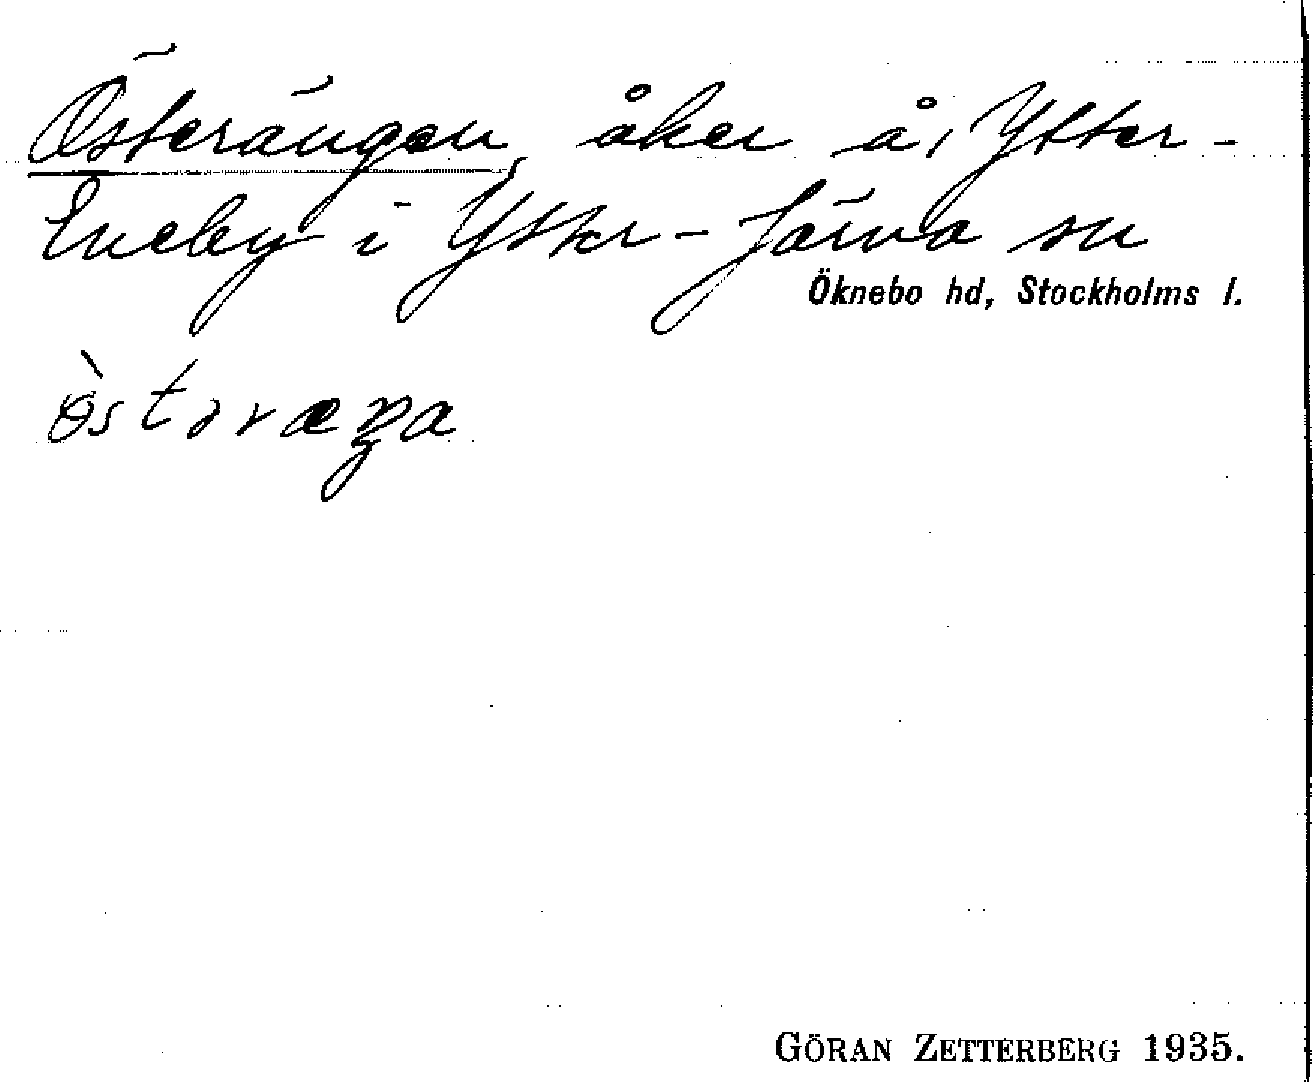 Österängen, åker å Ytter-
Eneby i Ytter-Järna sn
Öknebo hd, Stockholms l.
ò̤stəræŋa
GÖRAN ZETTERBERG 1935.